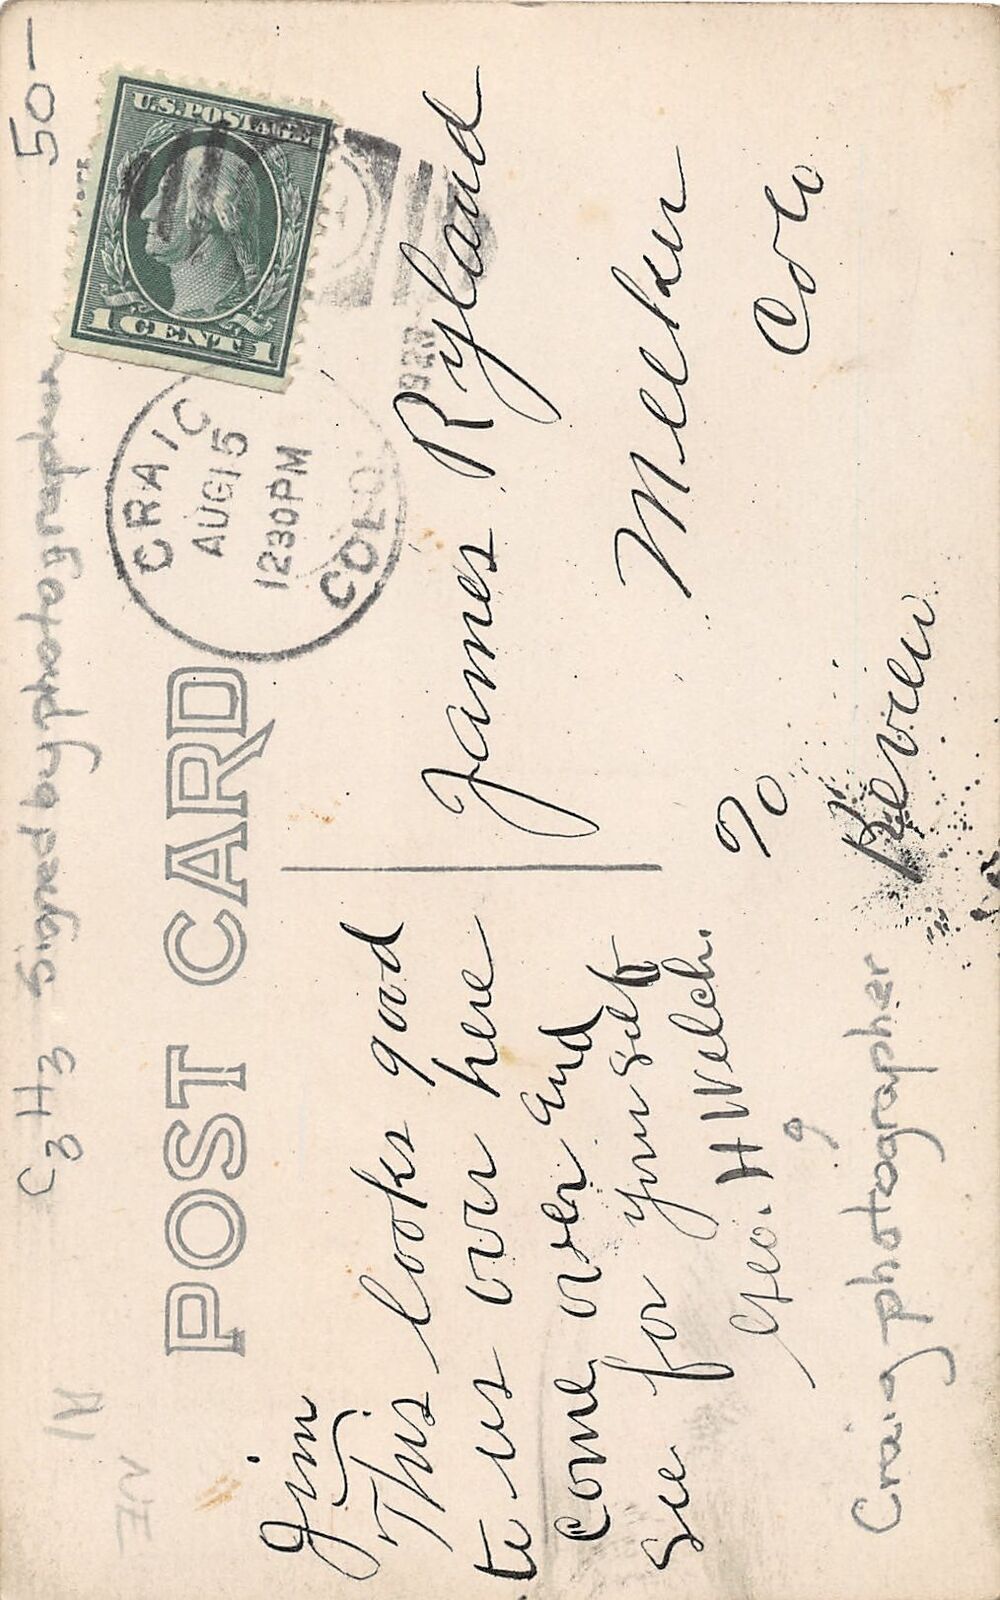 C3H3 Signed by photographer 50-
POST CARD
U.S. POSTAGE
1 CENT 1
CRAIG
AUG 15
1230PM
COLO.
Jim
This looks good
to us over here
Come over and
see for your self
Geo. H Welch.
James Ryland
Meeker
Colo
%
Review
Craig photographer